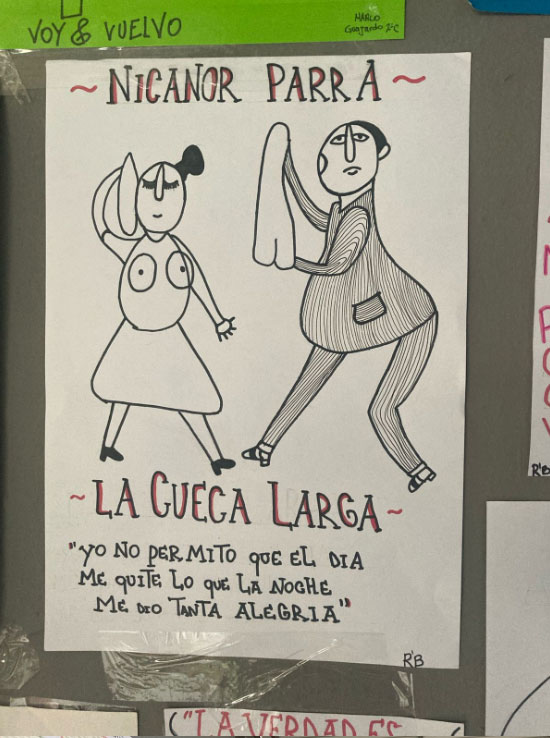 VOY & VUELVO
MARCO
Guajardo I-C
~ NICANOR PARRA ~
~ LA CUECA LARGA ~
"YO NO PERMITO QUE EL DIA
ME QUITE LO QUE LA NOCHE
ME DIO TANTA ALEGRIA"
R'B
R'B
("LA VERDAD ES